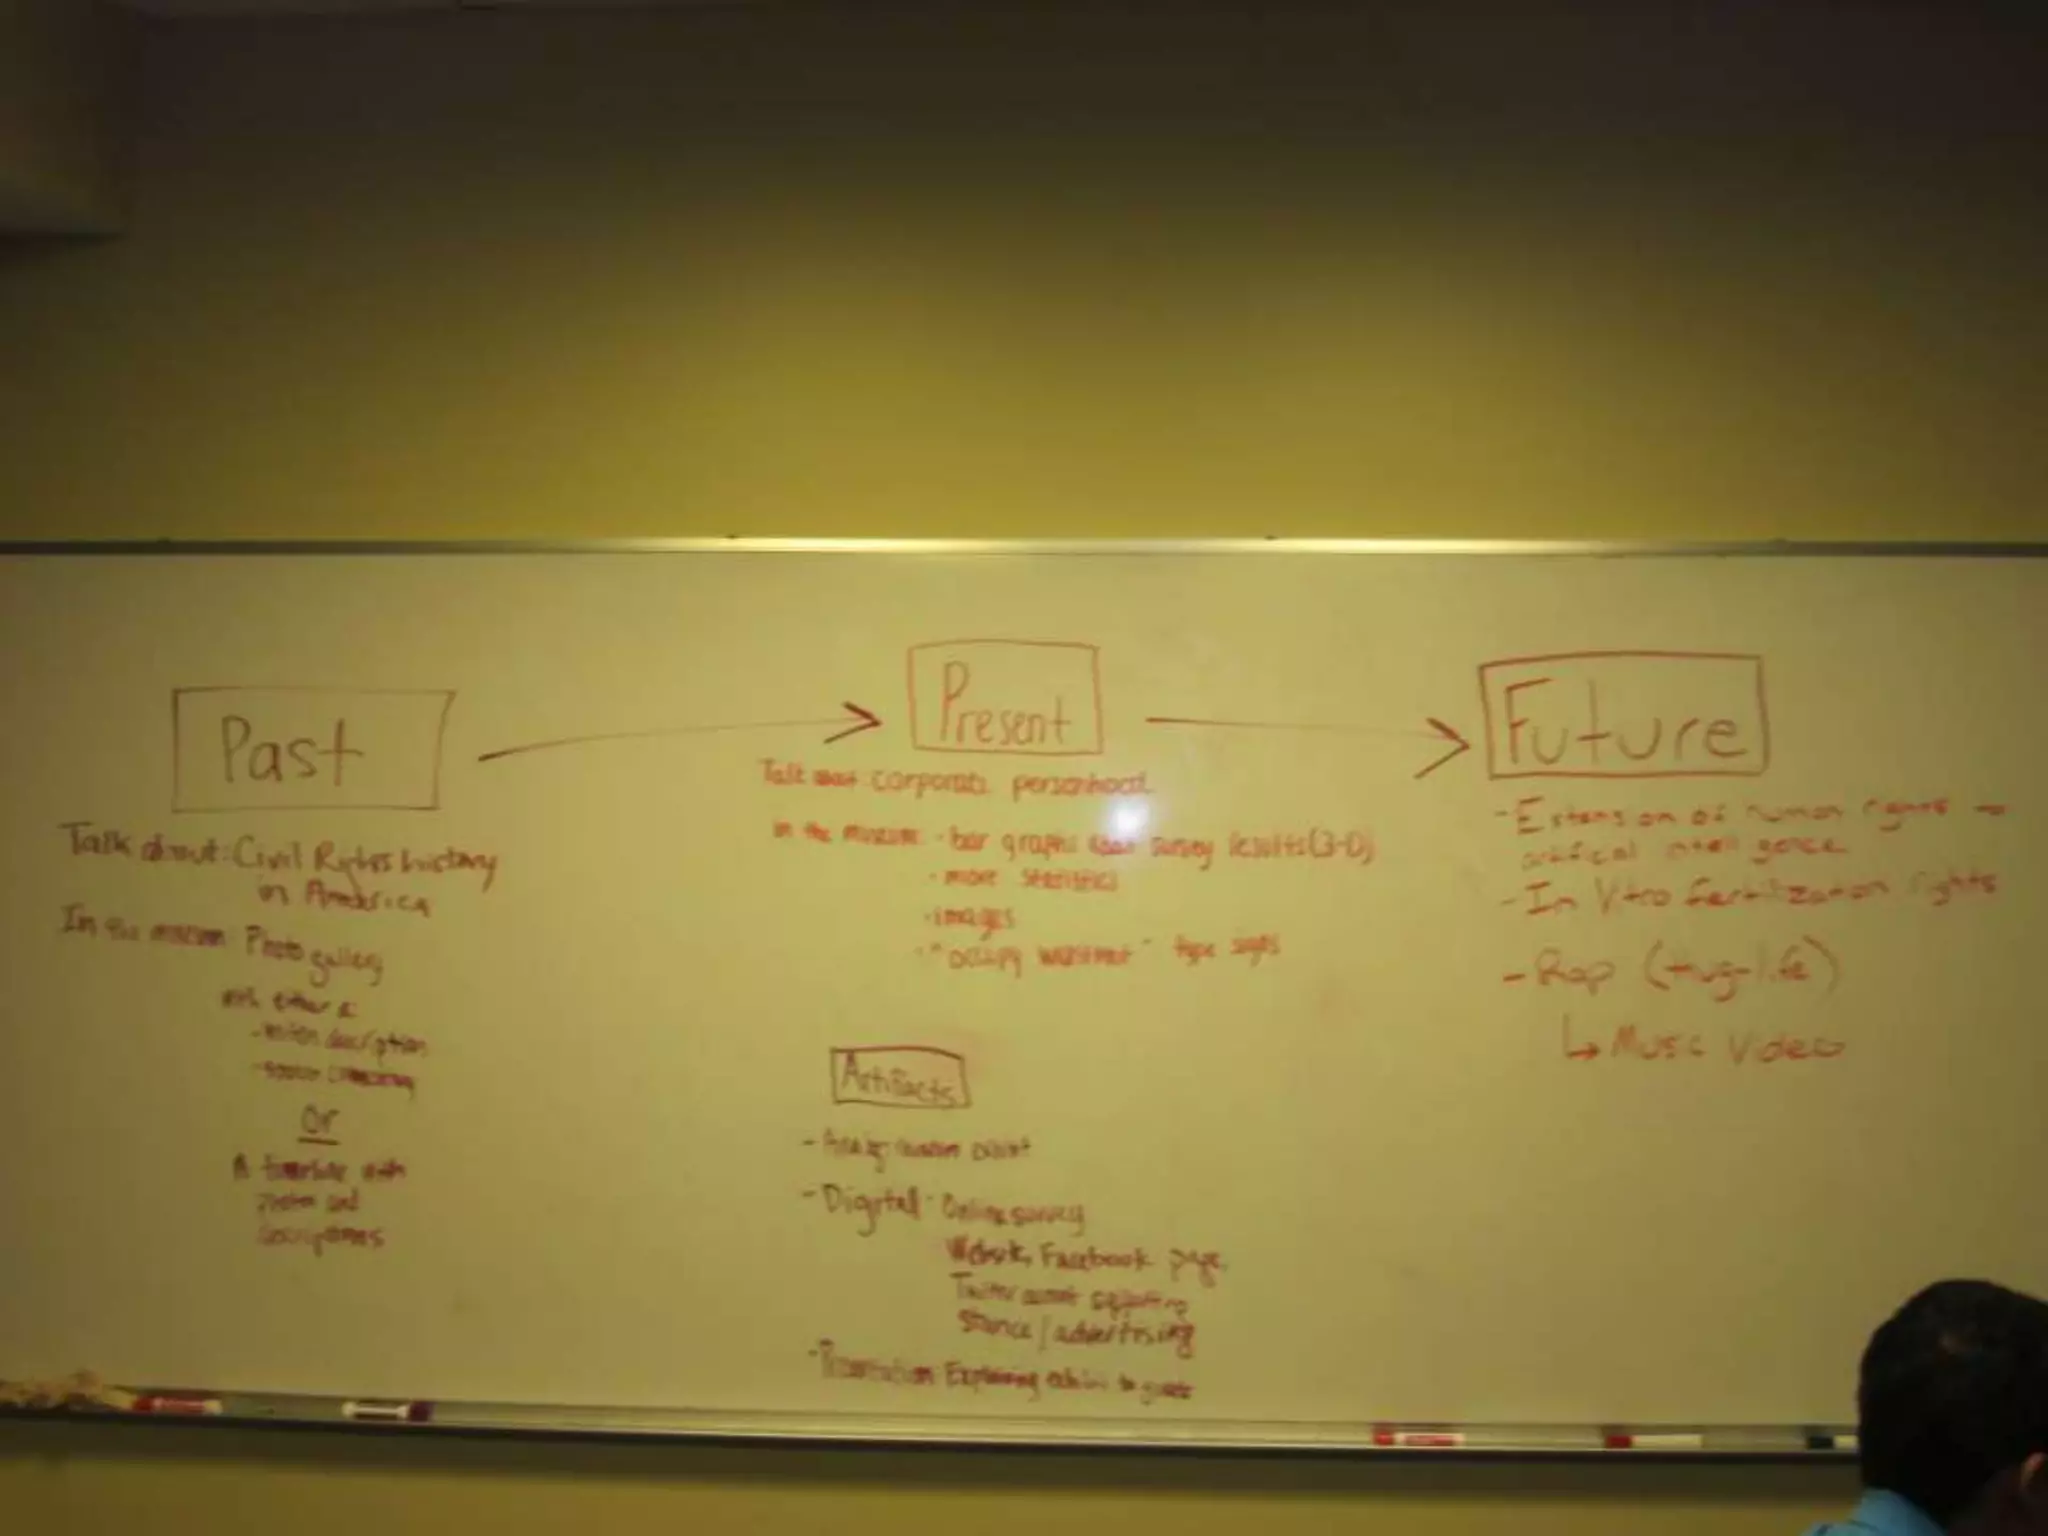 Past
Talk about: Civil Rights history
in America
In the museum: Photo gallery
with either a
- written description
or
A timeline with
photos and
descriptions
Present
Talk about: corporate personhood
in the museum: • bar graphs survey results (3-D)
• more statistics
• images
• "occupy wallstreet" type signs
Artifacts
- Analog: museum exhibit
- Digital: Online survey
Website, Facebook page,
Twitter supporting
stance / advertising
- Presentation: Explaining exhibit to guests
Future
- Extension of human rights to
artificial intelligence
- In Vitro fertilization rights
- Rap (thug-life)
↳ Music Video